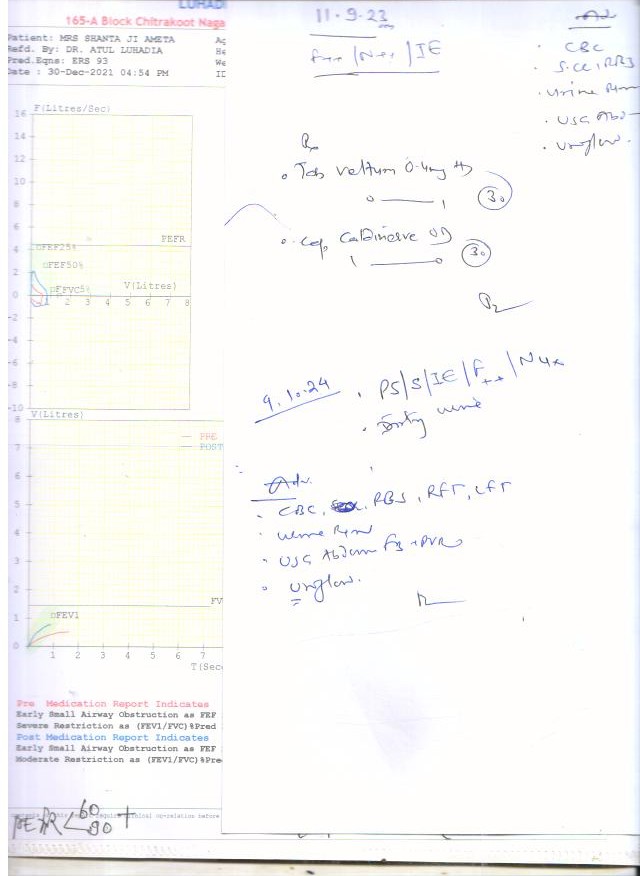 LUHADI
165-A Block Chitrakoot Naga
Patient: MRS SHANTA JI AMETA Ag
Refd. By: DR. ATUL LUHADIA He
Pred.Eqns: ERS 93 We
Date : 30-Dec-2021 04:54 PM ID
F(Litres/Sec)
16
14
12
10
8
6
PEFR
4
FEF25%
FEF50%
2
FEFVC5%
V(Litres)
0
1 2 3 4 5 6 7 8
-2
-4
-6
-8
-10
V(Litres)
8
7
PRE
POST
6
5
4
3
2
FV
1
FEV1
0
1 2 3 4 5 6 7
T(Sec
Pre Medication Report Indicates
Early Small Airway Obstruction as FEF
Severe Restriction as (FEV1/FVC)%Pred
Post Medication Report Indicates
Early Small Airway Obstruction as FEF
Moderate Restriction as (FEV1/FVC)%Pre
60
80
11.9.23
F++ / N++ / IE
Adv
• CBC
• S.Cr, RBS
• Urine R/m
• USG Abd
• Uroflow.
Rx
• Tab 0.4mg
0 1 30
• Cap OD
1 0 30
9.10.24
• PS/S/IE/F++/N4x
• urine
Adv.
• CBC, RBS, RFT, LFT
• Urine R/m
• USG Abdomen + PVR
• Uroflow.